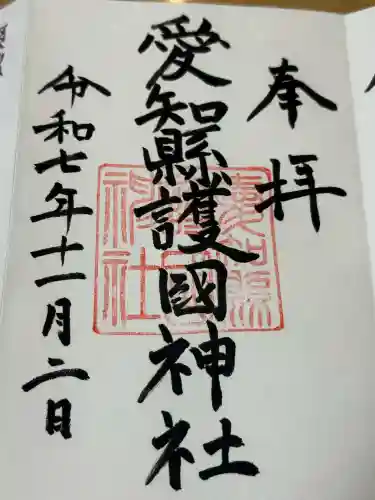 奉拝
愛知縣護國神社
令和七年十一月二日